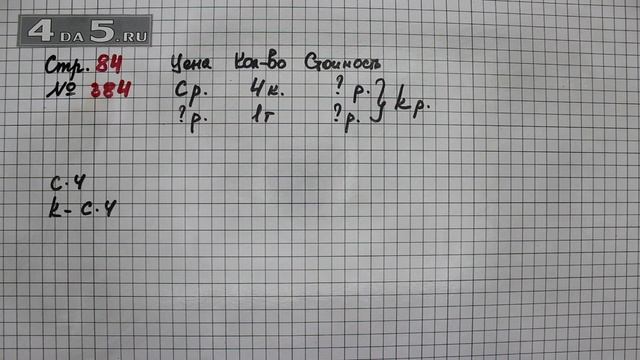 4 DA 5.RU
Стр. 84 Цена Кол-во Стоимость
№ 384 С р. 4 к. ? р. } k р.
? р. 1 т ? р.
с·4
k - с·4